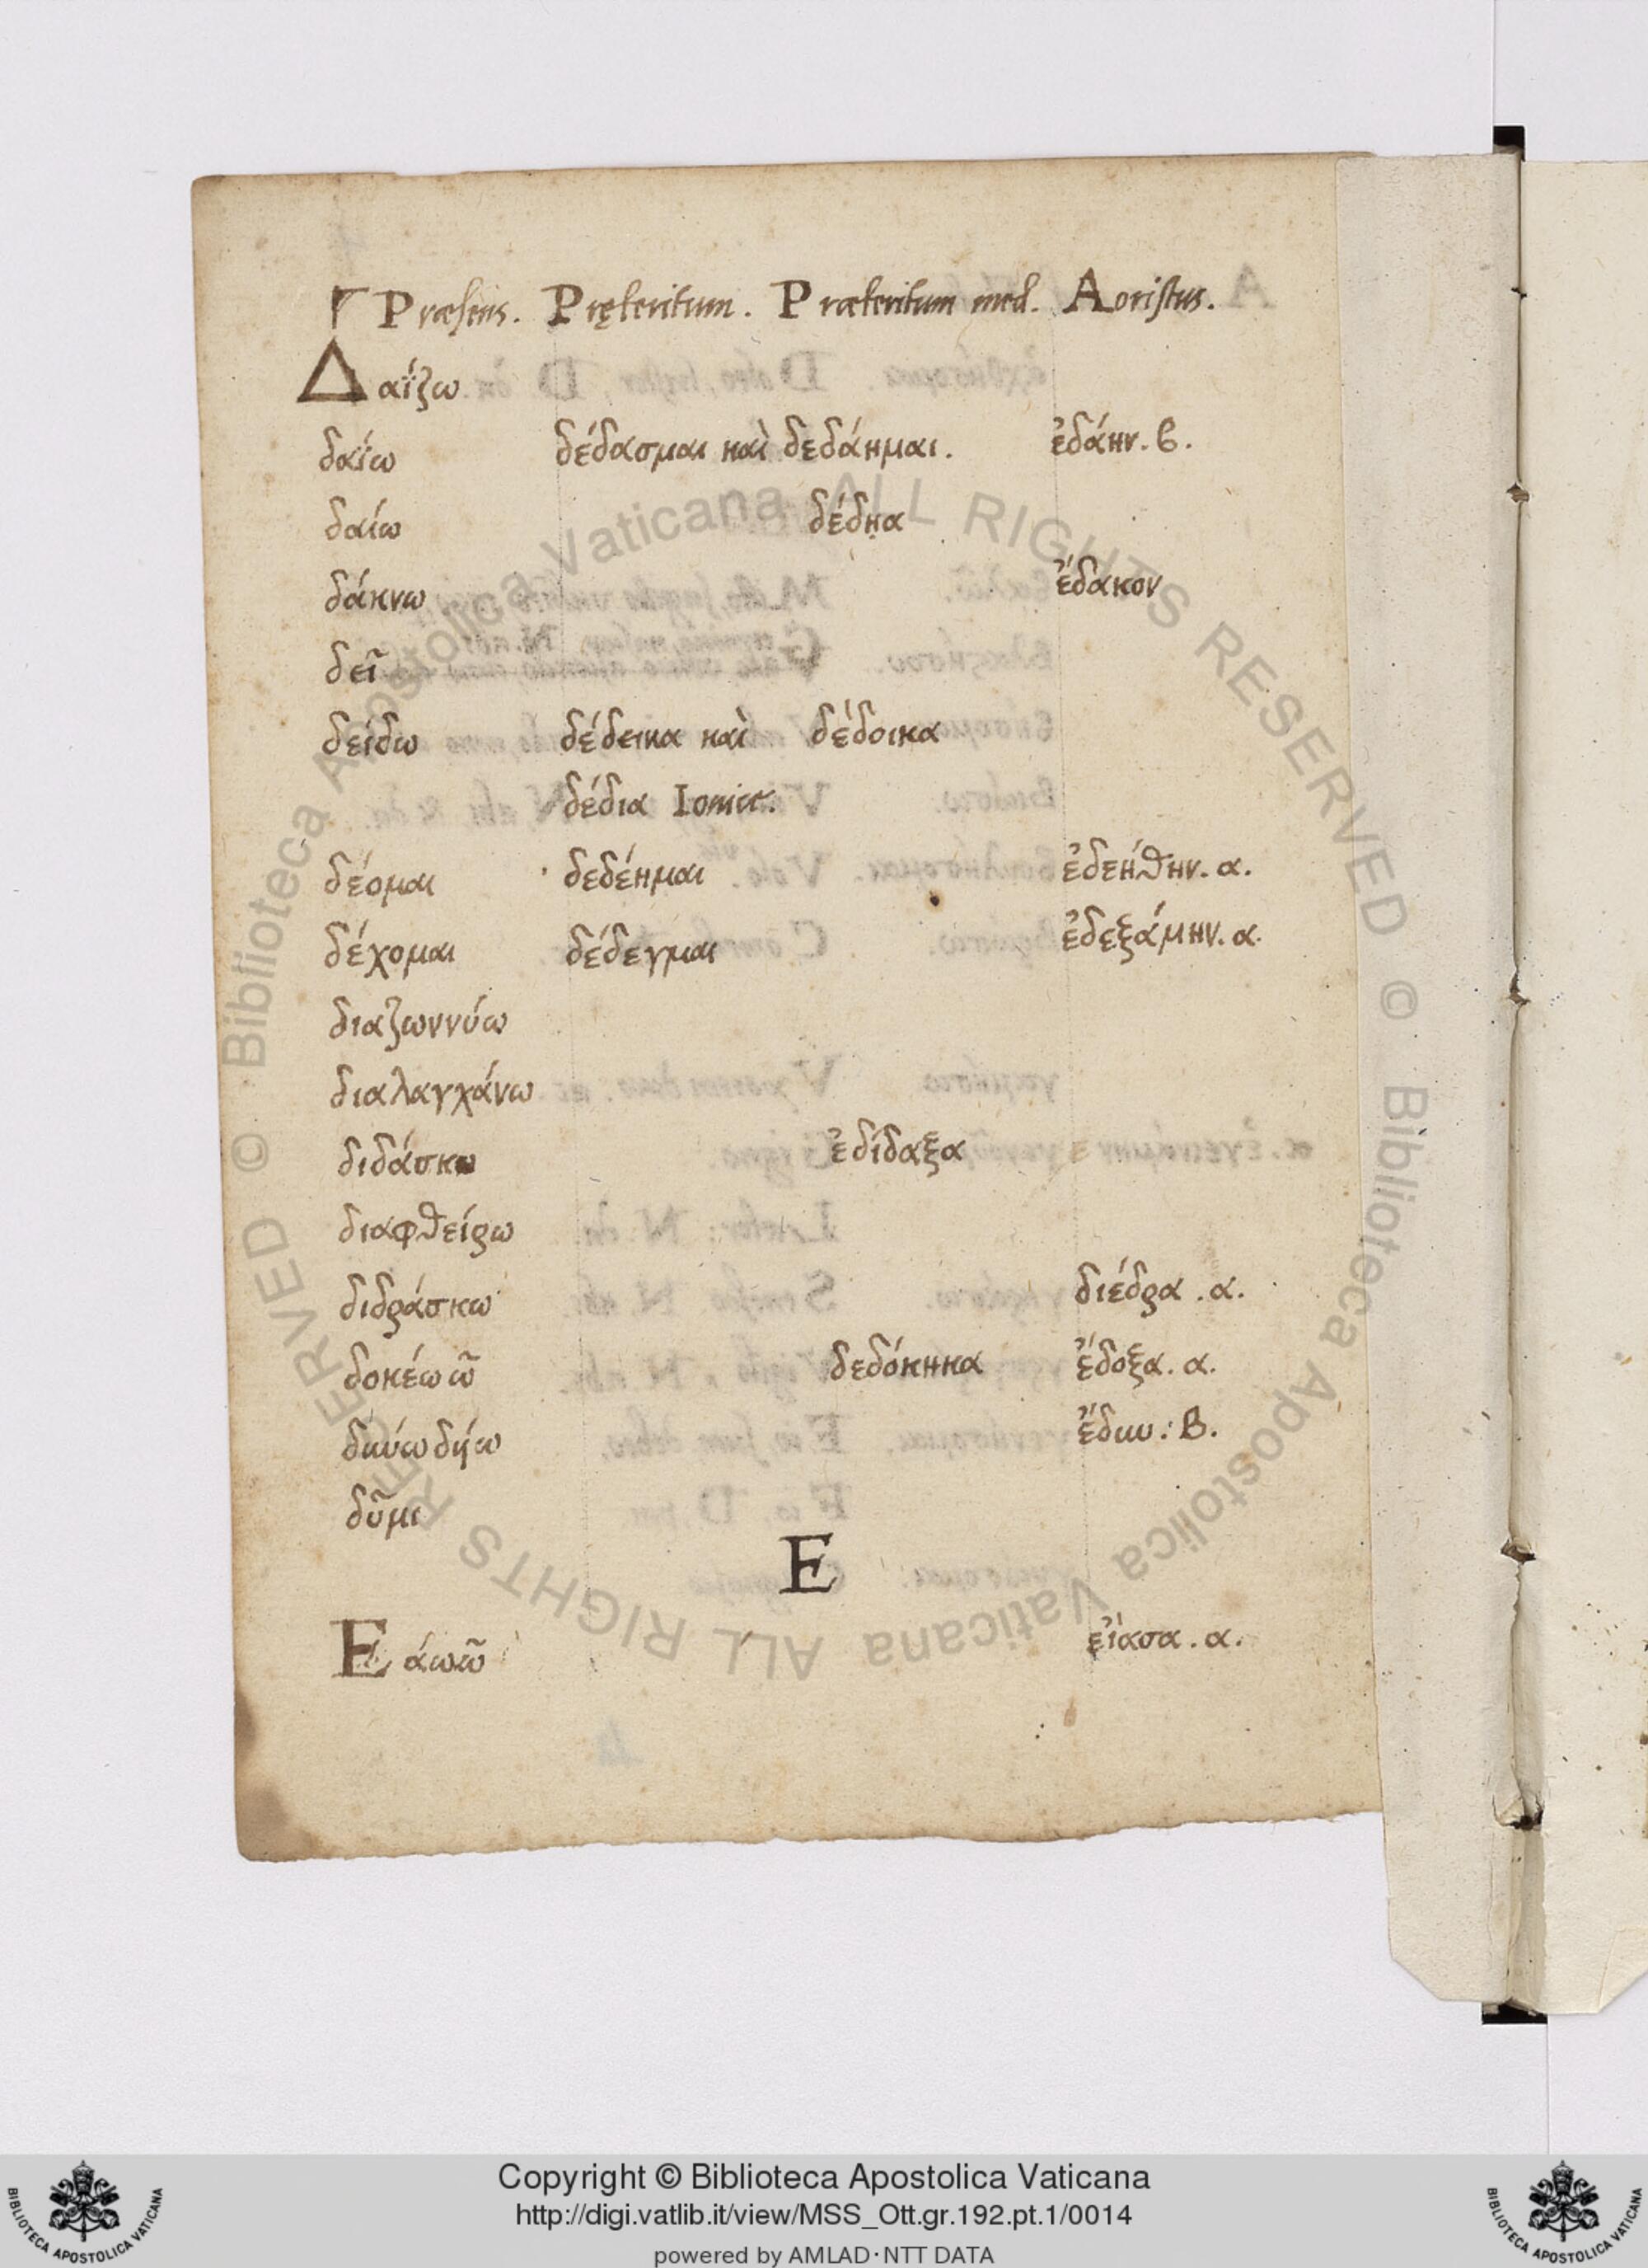 Γ Præsens. Pręteritum. Præteritum med. Aoristus.
Δαΐζω
δαΐω δέδασμαι καὶ δεδάημαι. ἐδάην. β.
δαίω δέδηα
δάκνω ἔδακον
δεῖ
δείδω δέδεικα καὶ δέδοικα
δέδια Ionicè.
δέομαι δεδέημαι ἐδεήθην. α.
δέχομαι δέδεγμαι ἐδεξάμην. α.
διαζωννύω
διαλαγχάνω
διδάσκω ἐδίδαξα
διαφθείρω
διδράσκω διέδρα. α.
δοκέω ῶ δεδόκηκα ἔδοξα. α.
Β.
δῦμι
E
Εάω ῶ εἴασα. α.
Copyright © Biblioteca Apostolica Vaticana
http://digi.vatlib.it/view/MSS_Ott.gr.192.pt.1/0014
powered by AMLAD·NTT DATA
BIBLIOTECA APOSTOLICA VATICANA
BIBLIOTECA APOSTOLICA VATICANA
© Biblioteca Apostolica Vaticana ALL RIGHTS RESERVED
© Biblioteca Apostolica Vaticana ALL RIGHTS RESERVED